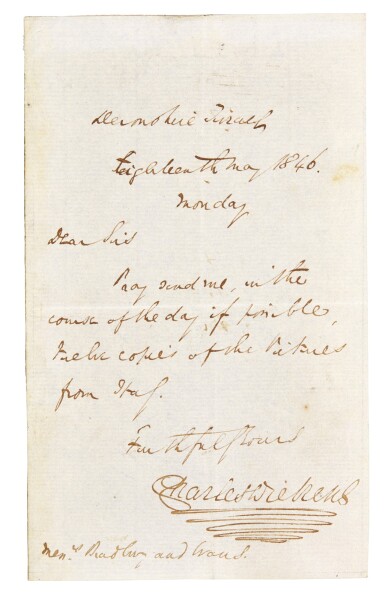 Devonshire Terrace
Eighteenth May 1846.
Monday
Dear Sirs
Pray send me, in the
course of the day if possible,
twelve copies of the Pictures
from Italy.
Faithfully Yours
Charles Dickens
Mess.rs Bradbury and Evans.